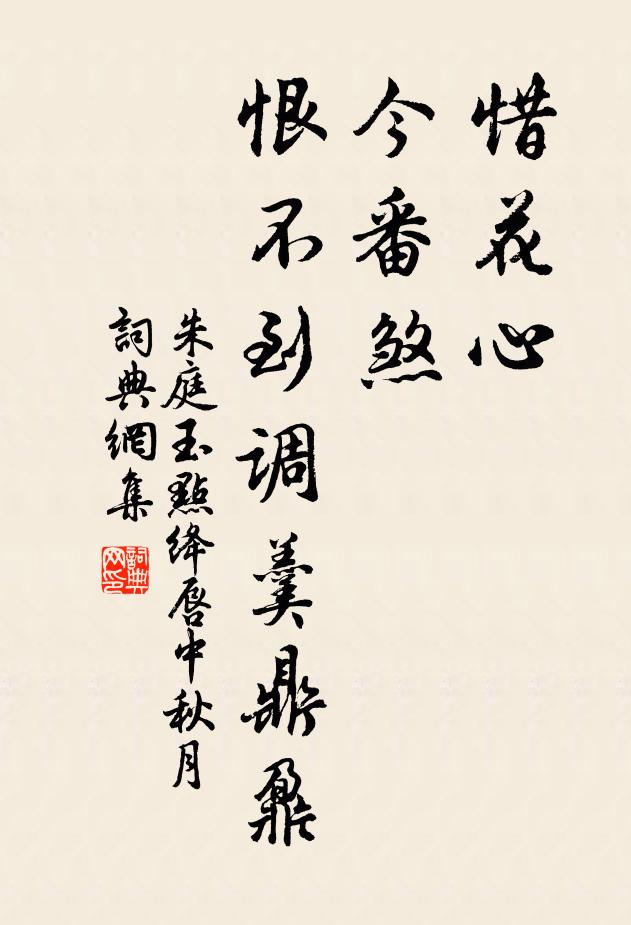 惜花心
今番煞
恨不到調羹鼎鼐
朱庭玉點絳唇中秋月
詞典網集
詞典网印